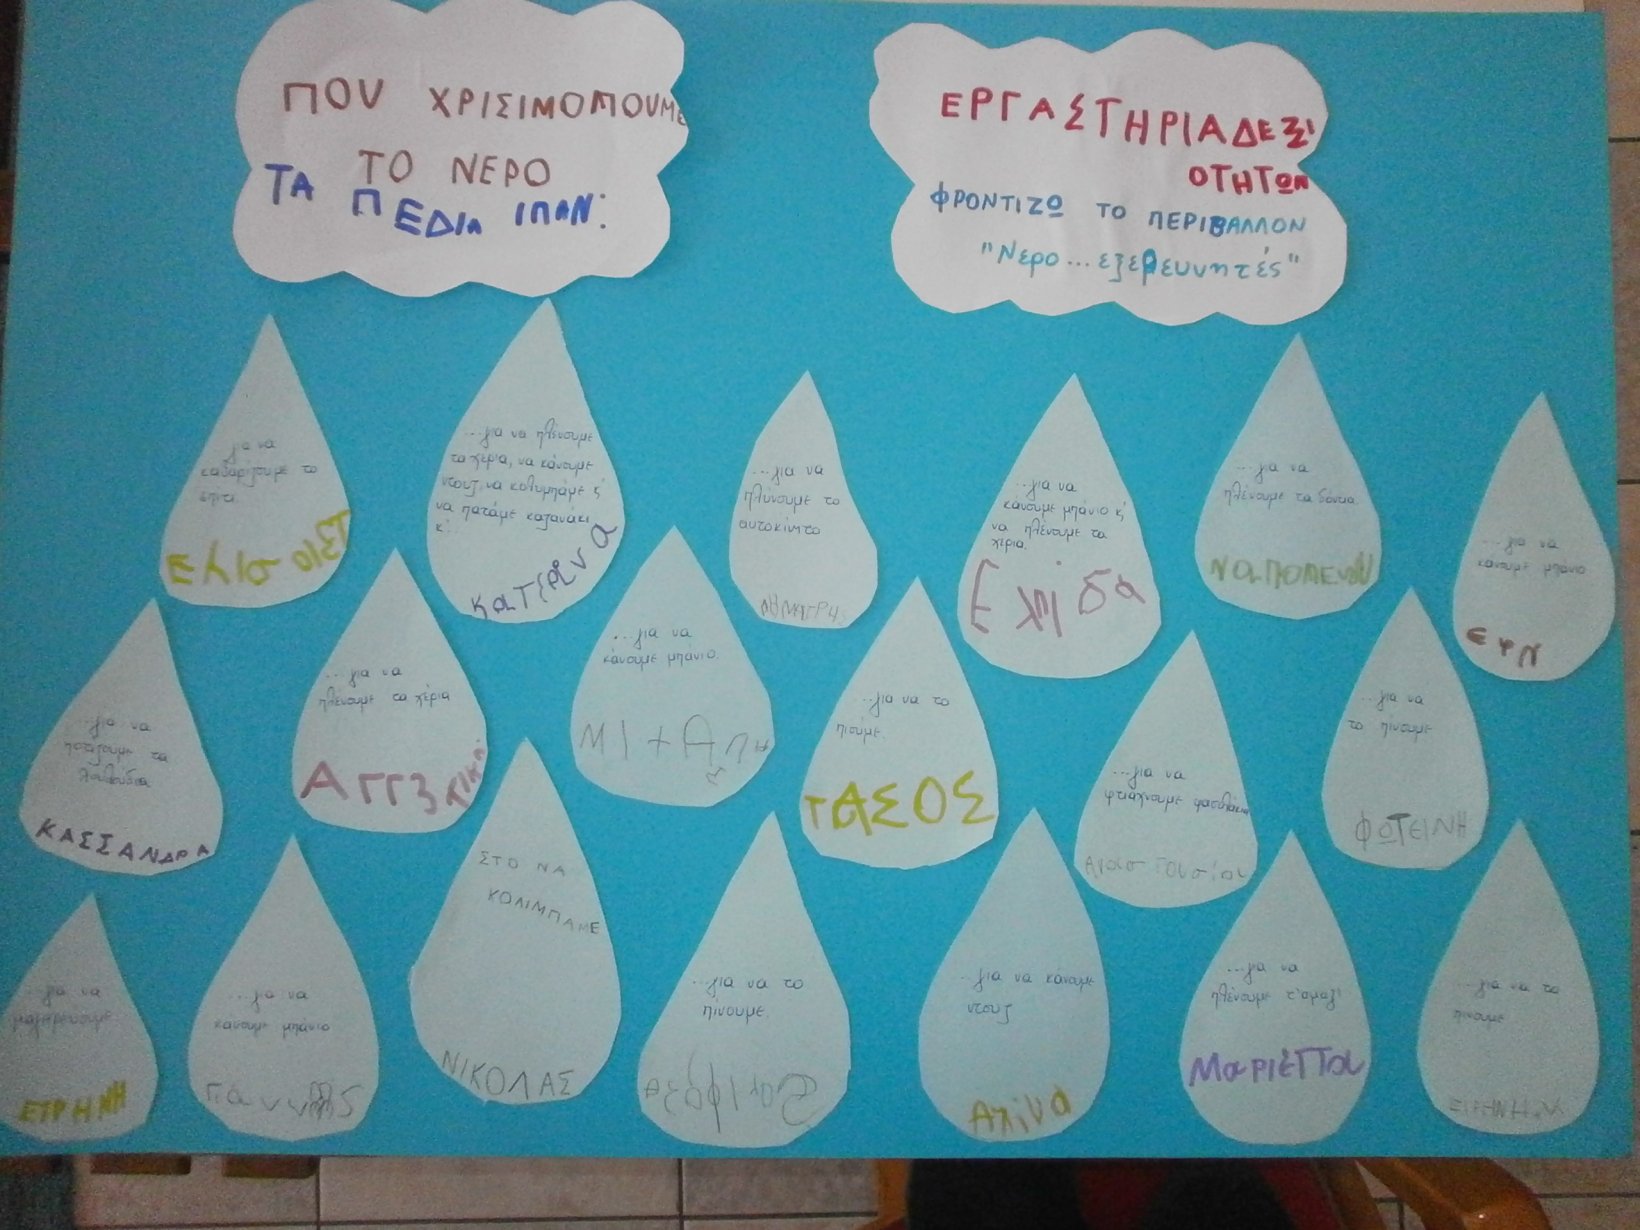 ΠΟΥ ΧΡΙΣΙΜΟΠΟΥΜΕ
ΤΟ ΝΕΡΟ
ΤΑ ΠΕΔΙΑ ΙΠΑΝ:
ΕΡΓΑΣΤΗΡΙΑΔΕΞΙ
ΟΤΗΤΩΝ
ΦΡΟΝΤΙΖΩ ΤΟ ΠΕΡΙΒΑΛΛΟΝ
"Νερο...εξερευνητές"
για να
καθαρίζουμε το
σπίτι
...για να πλένουμε
τα χέρια, να κάνουμε
ντουζ, να κολυμπάμε κ'
να πατάμε καζανάκι
κ'...
ΚαΤΕΡίνα
...για να
πλύνουμε το
αυτοκίνητο
...για να
κάνουμε μπάνιο κ'
να πλένουμε τα
χέρια.
Ελπίδα
...για να
πλένουμε τα δόντια
...για να
κάνουμε μπάνιο
...για να
ποτίζουμε τα
λουλούδια
ΚΑΣΣΑΝΔΡΑ
...για να
πλένουμε τα χέρια
...για να
κάνουμε μπάνιο.
...για να το
πιούμε.
ΤΑΣΟΣ
...για να
φτιάχνουμε φασολάκια
...για να
το πίνουμε
ΦΩΤΕΙΝΗ
...για να
μαγειρεύουμε
...για να
κάνουμε μπάνιο
Γιαννης
ΣΤΟ ΝΑ
ΚΟΛΙΜΠΑΜΕ
ΝΙΚΟΛΑΣ
...για να το
πίνουμε.
...για να κάνουμε
ντουζ
Αλίνα
...για να
πλένουμε τ'αμάξι
ΜαΡΙΕΤΤα
...για να το
πίνουμε